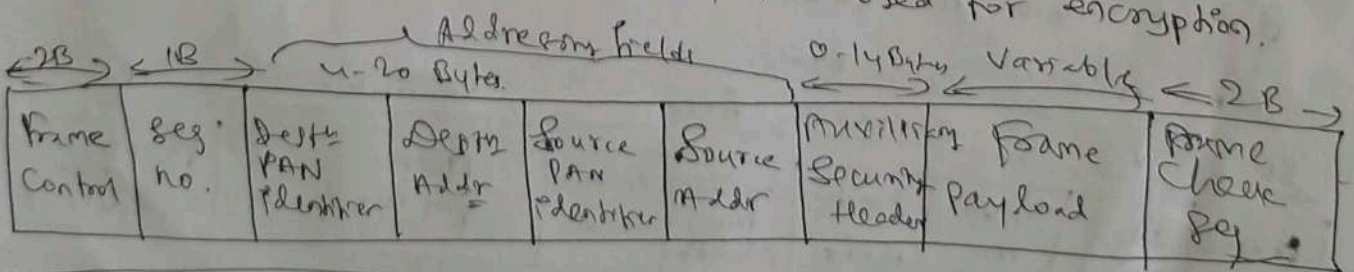 used for encryption.
Addressing fields
2B 1B 4-20 Bytes. 0-14 Bytes Variable 2B
Frame Control
Seq. no.
Destn PAN identifier
Destn Addr
Source PAN identifier
Source Addr
Auxiliary Security Header
Frame Payload
Frame Check Seq